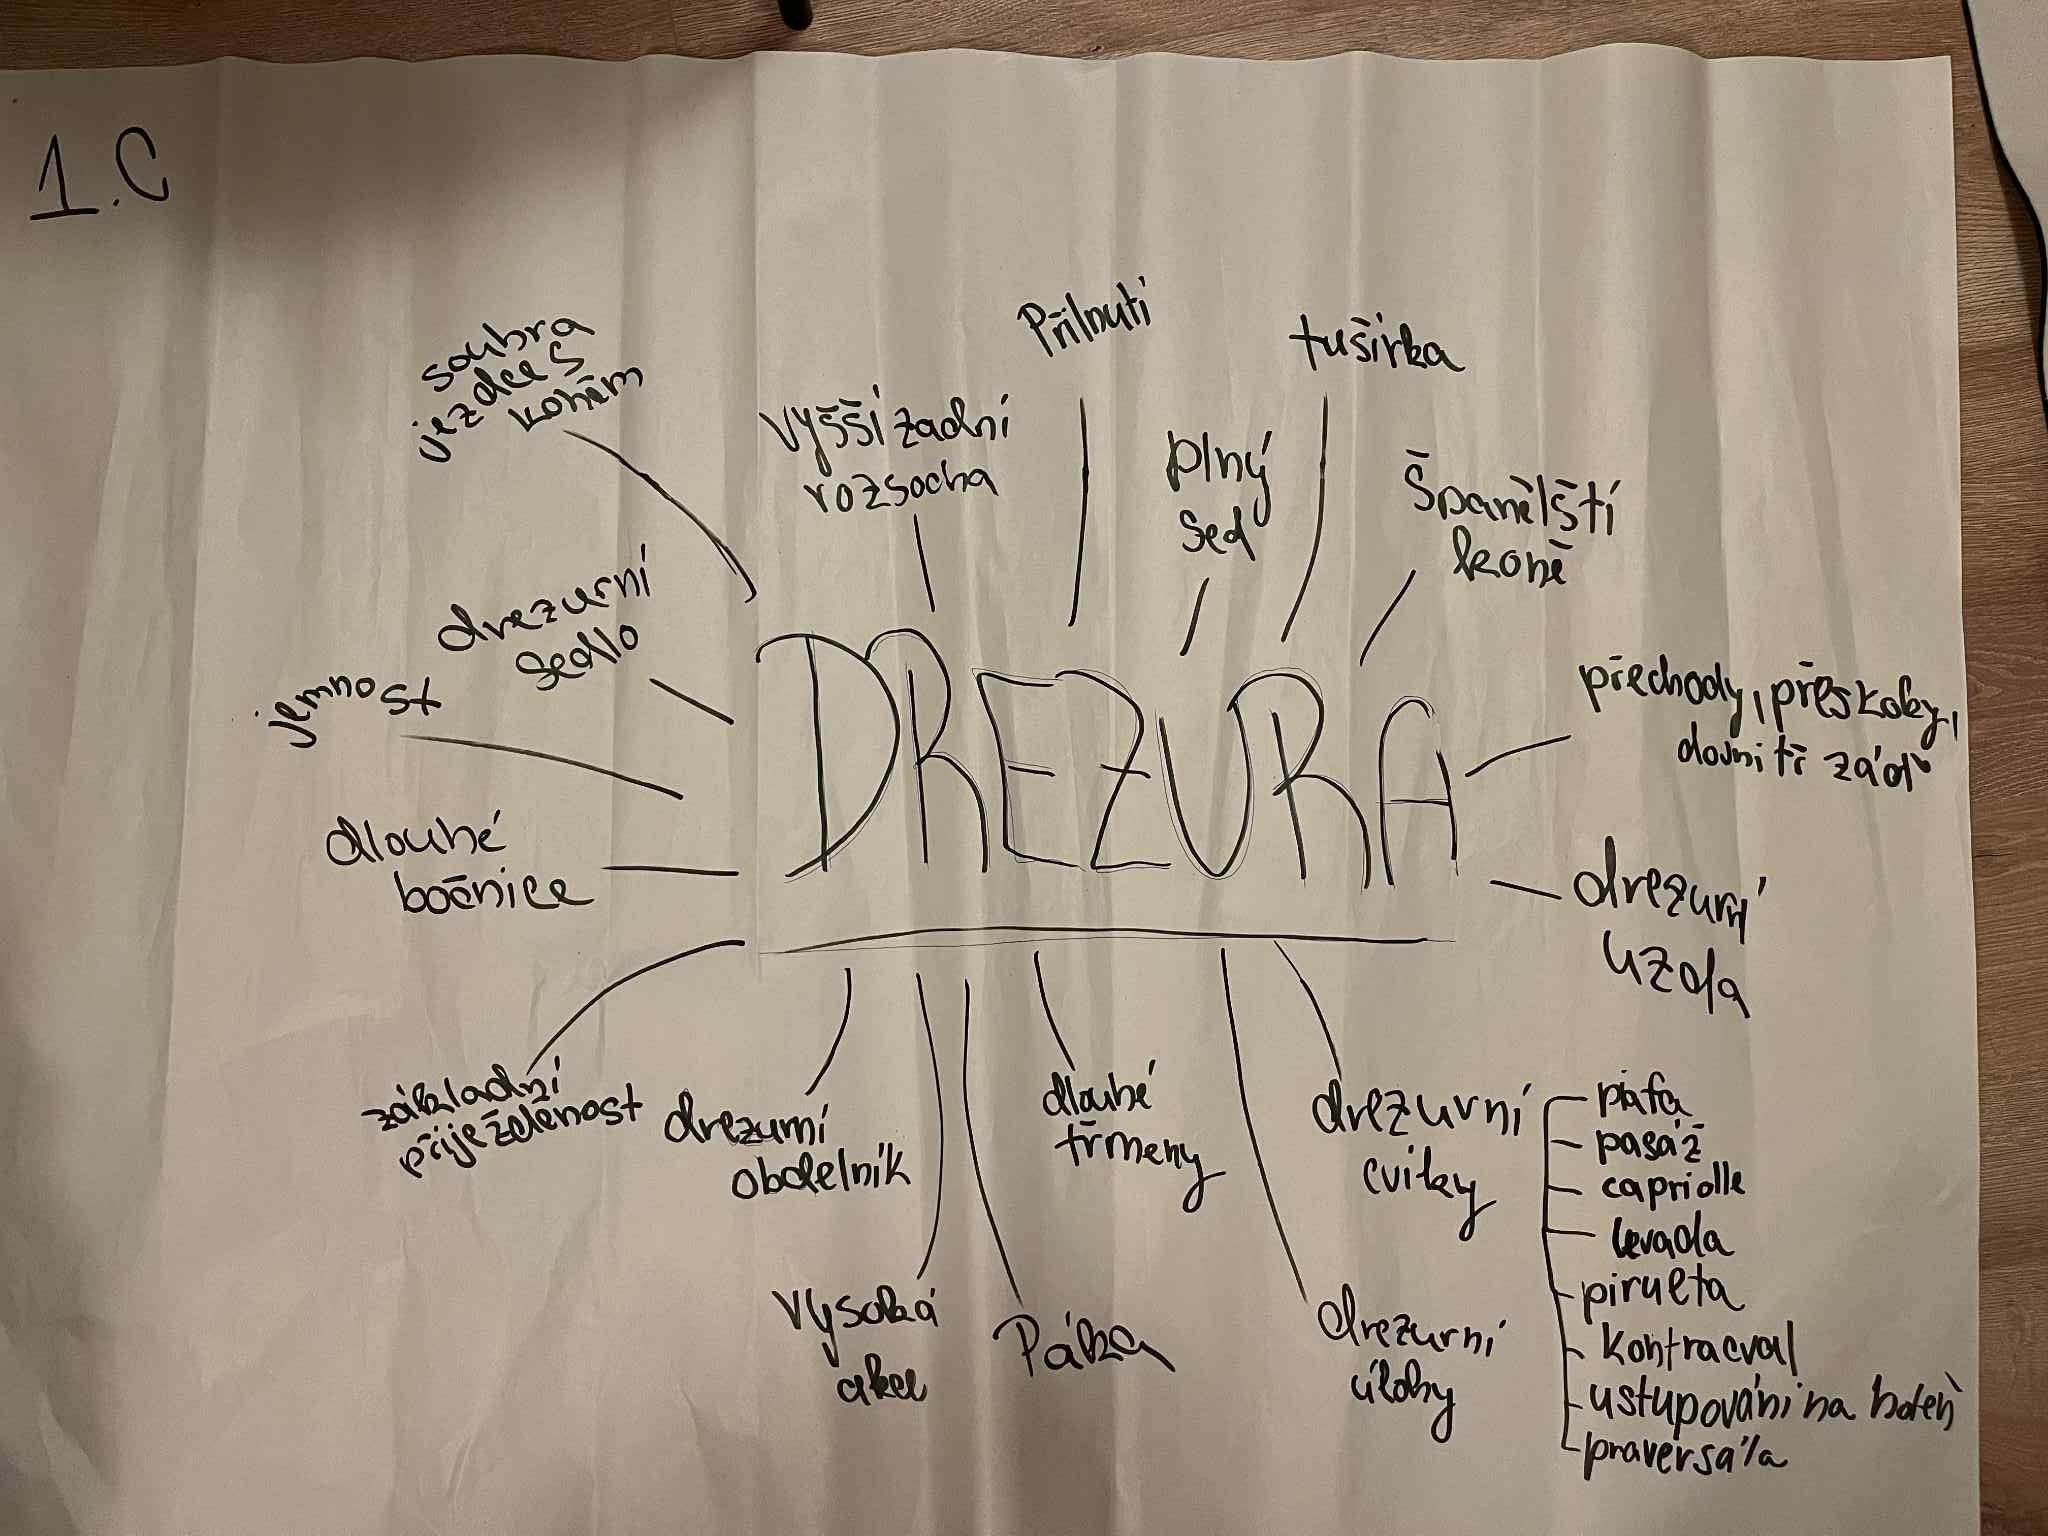 1.C
Přilnutí
tušírka
souhra
jezdce s
koněm
vyšší zadní
rozsocha
plný
sed
Španělští
koně
drezurní
sedlo
jemnost
přechody, přeskoky,
dovnitř záď
DREZURA
dlouhé
bočnice
drezurní
uzda
základní
přiježděnost
drezurní
obdelník
dlouhé
třmeny
drezurní
cviky
piafa
pasáž
capriolle
levada
pirueta
kontracval
ustupování na holeň
praversála
vysoká
akce
Páka
drezurní
úlohy